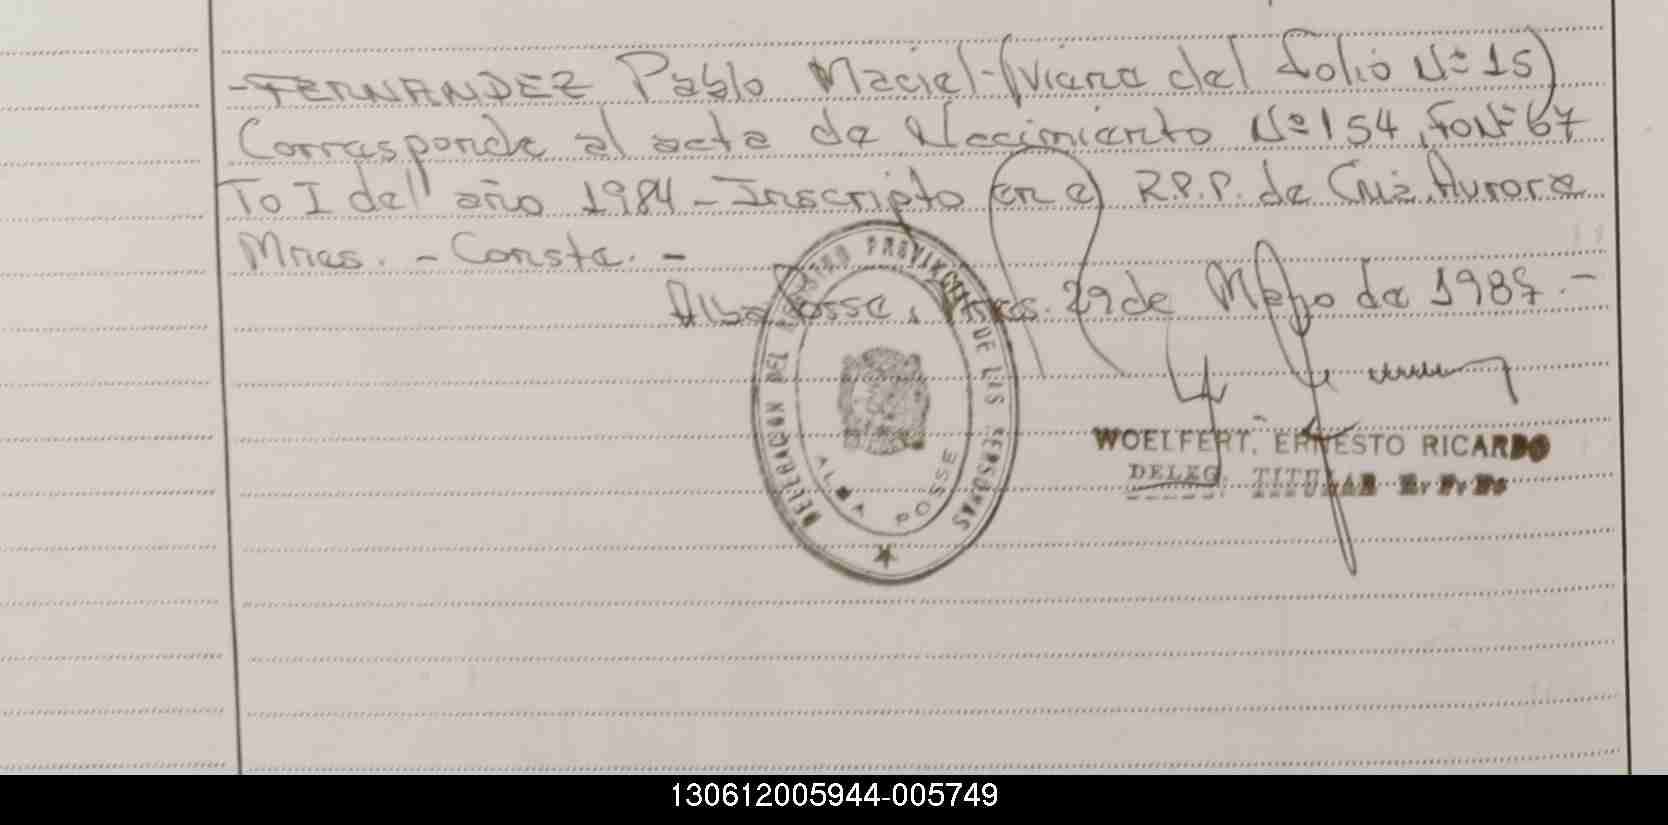 -FERNANDEZ Pablo Maciel-(viene del folio Nº 15)
Corresponde al acta de Nacimiento Nº 154, Fo Nº 67
To I del año 1984 - Inscripto en el R.P.P. de Cnia. Aurora
Mnes. - Conste. -
Alba Posse, Mnes. 29 de Mayo de 1987. -
DELEGACION DEL REGISTRO PROVINCIAL DE LAS PERSONAS
ALBA POSSE
WOELFERT, ERNESTO RICARDO
DELEG. TITULAR R. P. P.
130612005944-005749